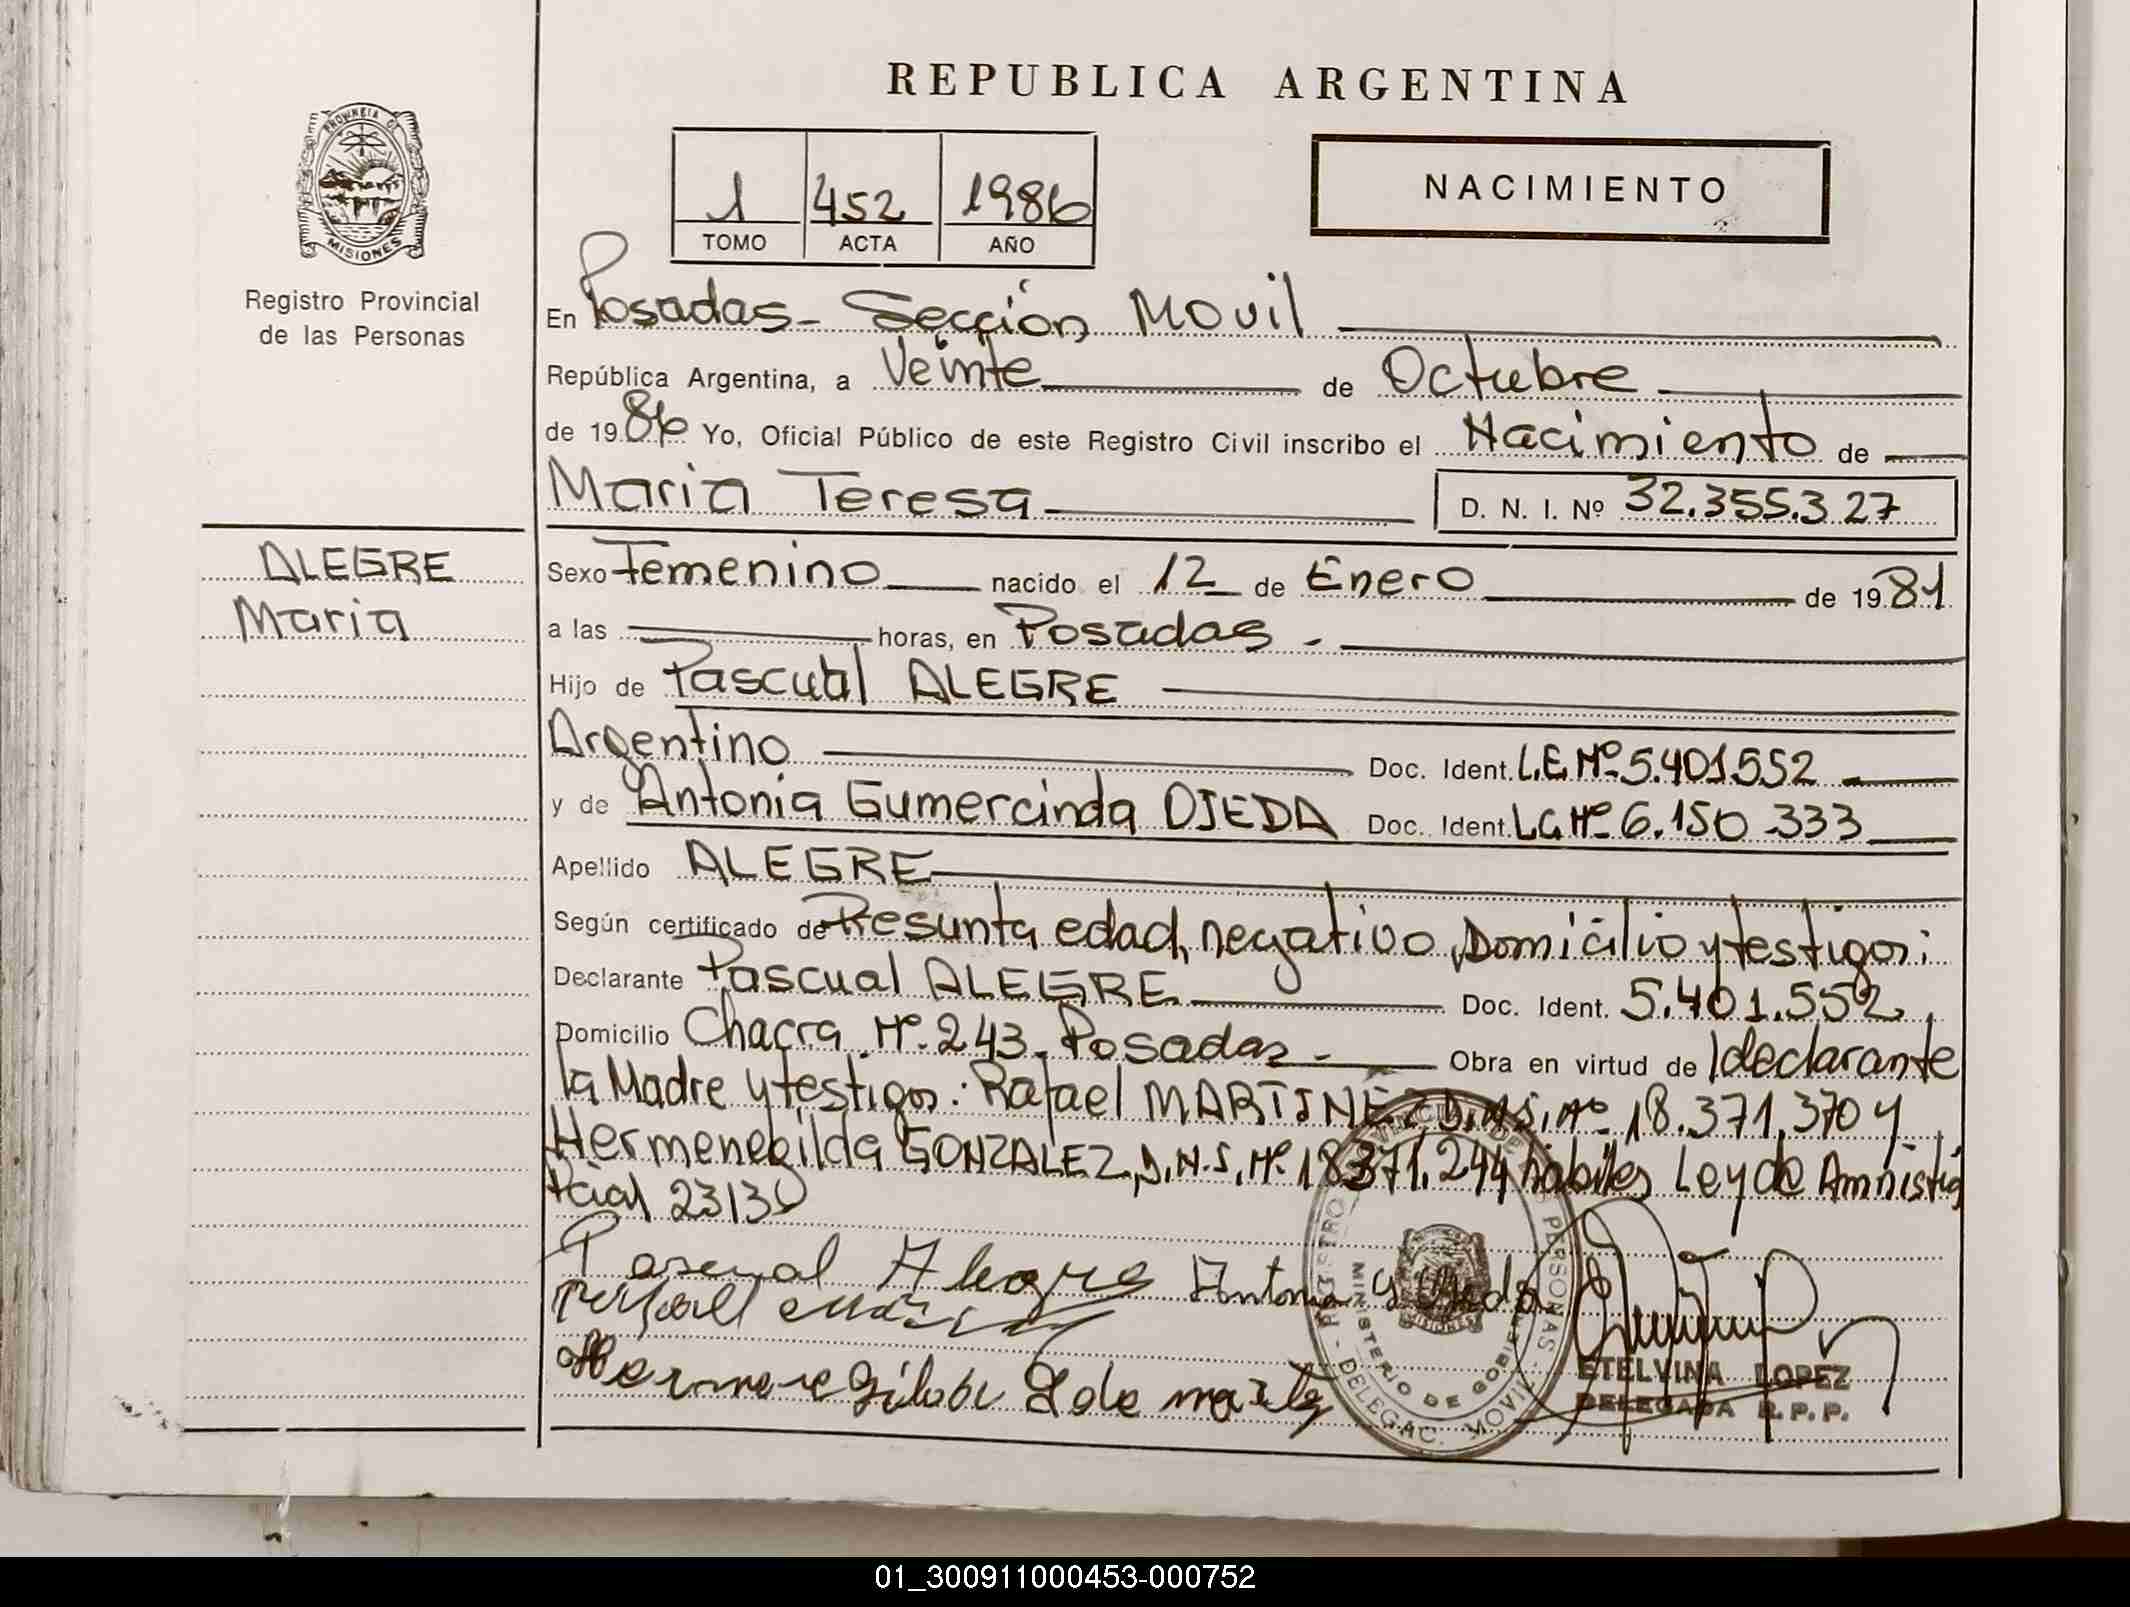 REPUBLICA ARGENTINA
PROVINCIA DE
MISIONES
Registro Provincial
de las Personas
1 452 1986
TOMO ACTA AÑO
NACIMIENTO
En Posadas - Sección Movil
República Argentina, a Veinte de Octubre
de 1986 Yo, Oficial Público de este Registro Civil inscribo el Nacimiento de
Maria Teresa D. N. I. Nº 32.355.327
ALEGRE
Maria
Sexo Femenino nacido el 12 de Enero de 1981
a las horas, en Posadas -
Hijo de Pascual ALEGRE
Argentino Doc. Ident. L.E. Nº 5.401.552
y de Antonia Gumercinda OJEDA Doc. Ident. L.C. Nº 6.150.333
Apellido ALEGRE
Según certificado de Presunta edad, negativo, Domicilio y testigos;
Declarante Pascual ALEGRE Doc. Ident. 5.401.552,
Domicilio Chacra Nº 243 - Posadas - Obra en virtud de declarante
la Madre y testigos: Rafael MARTINEZ D.N.I. Nº 18.371.370 y
Hermenegilda GONZALEZ, D.N.I. Nº 18.371.244 habiles Ley de Amnistia
Pcial 2313
Pascual Alegre Antonia G Ojeda
REGISTRO PROVINCIAL DE LAS PERSONAS - DELEGAC. MOVIL
MINISTERIO DE GOBIERNO
MISIONES
ETELVINA LOPEZ
DELEGADA R. P. P.
01_300911000453-000752